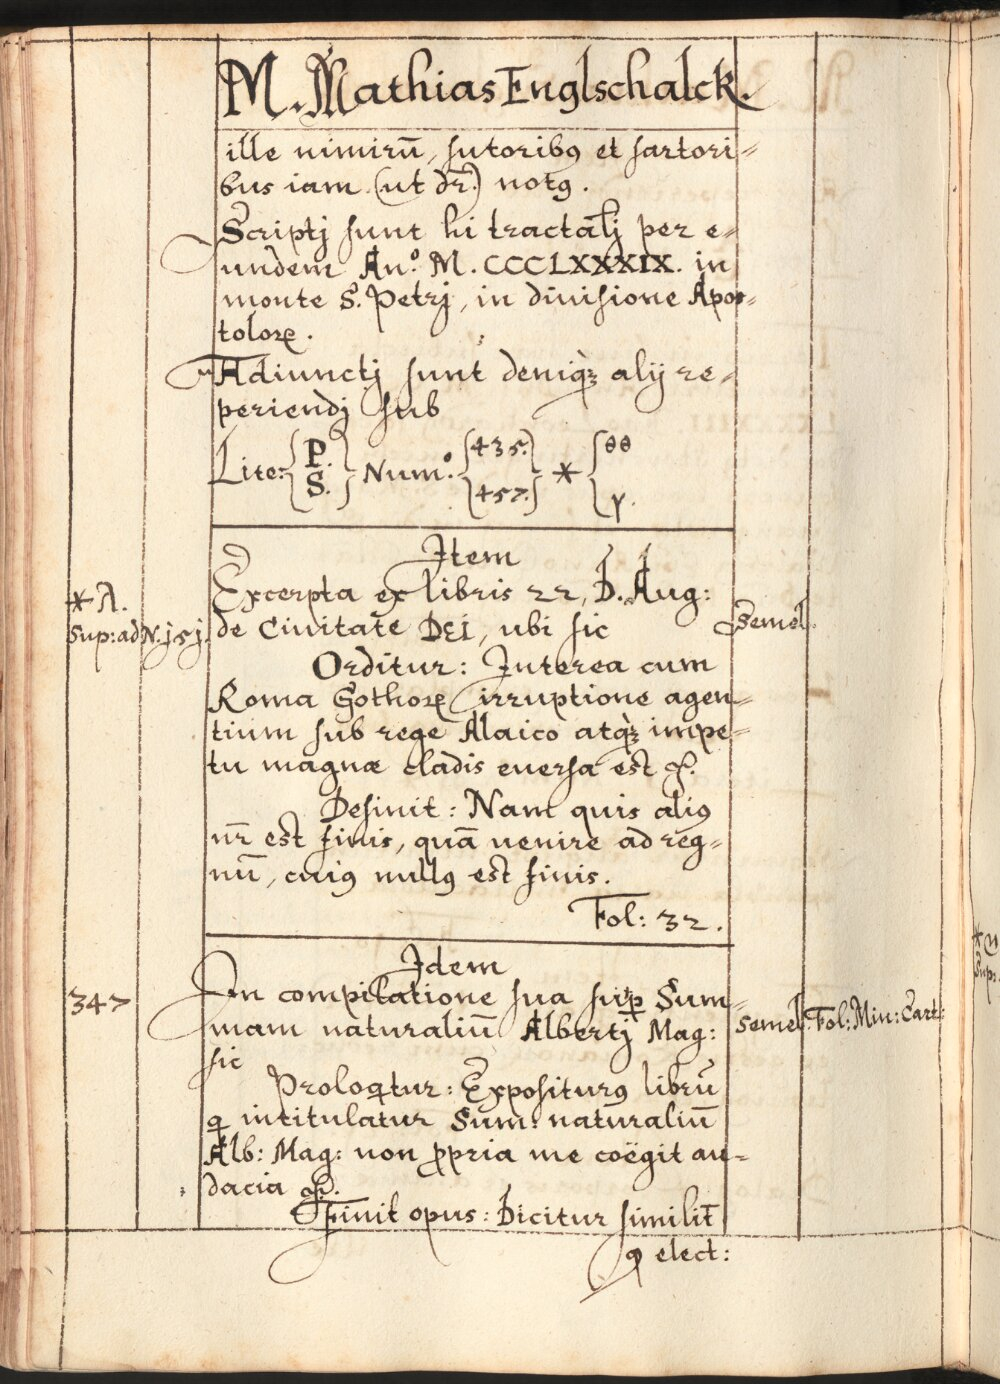 M. Mathias Englschalck.
ille nimirū, sutoribꝯ et sartori=
bus iam (ut dr̄.) notꝯ.
Scriptj sunt hi tractatj per e=
undem An.º M. CCCLXXXIX. in
monte S. Petrj, in diuisione Apos=
toloꝝ.
Adiunctj sunt deniqꝫ alÿ re=
periendj sub
Lite: { P. S. } Num.º { 435. 457. } * { θθ γ.
Item
Excerpta ex libris 22, D. Aug:
de Ciuitate DEI, ubi sic
* A.
Sup: ad N. j5j.
Semel.
Orditur: Interea cum
Roma Gothoꝝ irruptione agen=
tium sub rege Alaico atqꝫ impe=
tu magnæ cladis euersa est &.
Desinit: Nam quis aliꝯ
nr̄ est finis, quā uenire ad reg=
nū, cuiꝯ nullꝯ est finis.
Fol: 32.
Idem
347
In compilatione sua suꝑ Sum=
mam naturaliū Albertj Mag:
semel. Fol: Min: Cart:
sic
Prologꝗtur: Expositurꝯ librū
ꝗ intitulatur Sum: naturaliū
Alb: Mag: non ꝓpria me coëgit au=
dacia &.
Finit opus: Dicitur similit̄
ꝙ elect: